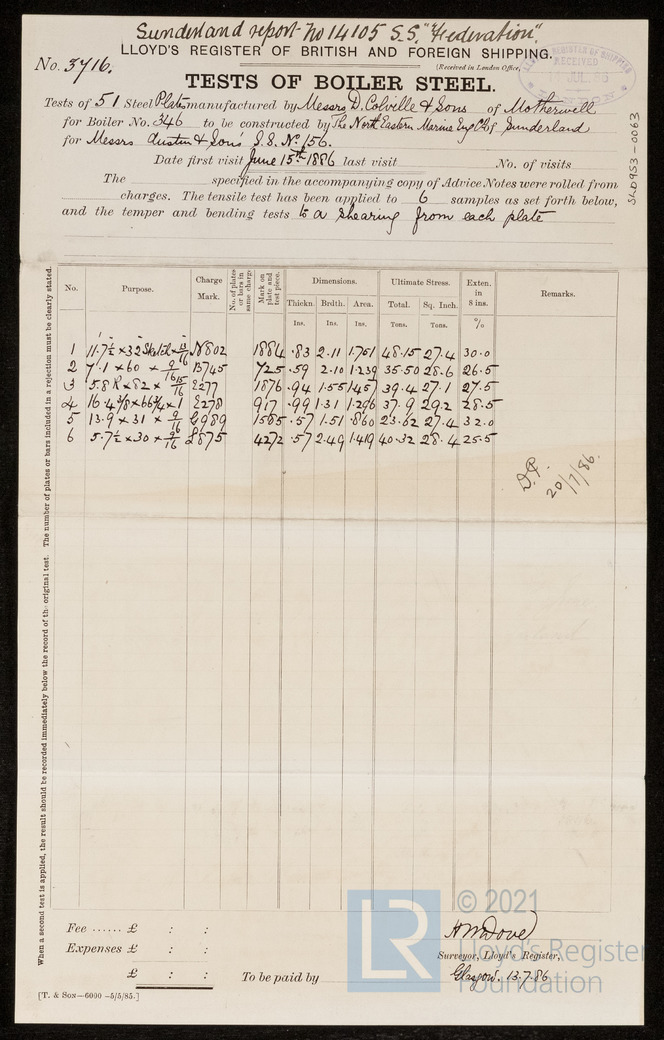 Sunderland report No 14105 S.S. "Federation".
LLOYD'S REGISTER OF BRITISH AND FOREIGN SHIPPING.
No. 3716.
(Received in London Office,
RECEIVED
TESTS OF BOILER STEEL.
Tests of 51 Steel Plates manufactured by Messrs D. Colville & Sons of Motherwell
for Boiler No. 346 to be constructed by The North Eastern Marine Eng Co of Sunderland
for Messrs Austin & Son's S.S. No 156.
Date first visit June 15th 1886 last visit No. of visits
The specified in the accompanying copy of Advice Notes were rolled from
charges. The tensile test has been applied to 6 samples as set forth below,
and the temper and bending tests to a shearing from each plate
SLD953-0063
When a second test is applied, the result should be recorded immediately below the record of the original test. The number of plates or bars included in a rejection must be clearly stated.
No. Purpose. Charge Mark. No. of plates or bars in same charge Mark on plate and test piece. Dimensions. Ultimate Stress. Exten. in 8 ins. Remarks.
Thickn. Brdth. Area. Total. Sq. Inch.
Ins. Ins Ins. Tons. Tons. %
1 11.7½ × 32 Sketch × 13/16 N802 1884 .83 2.11 1.751 48.15 27.4 30.0
2 7.1 × 60 × 9/16 B745 725 .59 2.10 1.239 35.50 28.6 26.5
3 5.8 R × 82 × 15/16 E277 1876 .94 1.55 1.457 39.4 27.1 27.5
4 16.4 3/8 × 66¾ × 1 E278 917 .99 1.31 1.296 37.9 29.2 28.5
5 13.9 × 31 × 9/16 1585 .57 1.51 .860 23.62 27.4 32.0
6 5.7½ × 30 × 9/16 4272 .57 2.49 1.419 40.32 28.4 25.5
20/7/86.
Fee ...... £ : :
Expenses £ : :
£ : :
To be paid by
Surveyor, Lloyd's Register,
Glasgow. 13.7.86
[T. & Son—6000 —5/5/85.]
LR
© 2021
Lloyd's Register
Foundation